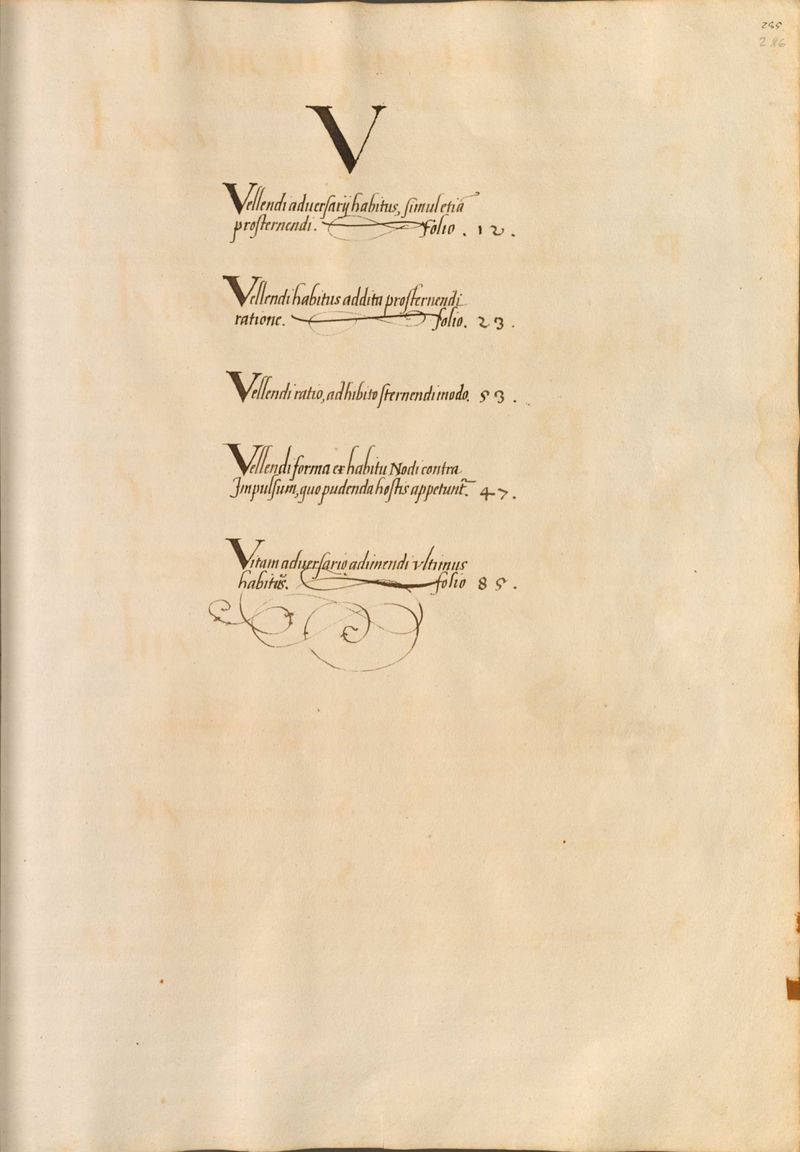 255
286
V
Vellendi aduersarij habitus, simul etiā
prosternendi. folio . 12 .
Vellendi habitus addita prosternendi
ratione. folio. 23 .
Vellendi ratio, adhibito sternendi modo. 53 .
Vellendi forma ex habitu Nodi contra
Impulsum, quo pudenda hostis appetunt̄. 47 .
Vitam aduersario adimendi vltimus
habitus. folio 85 .